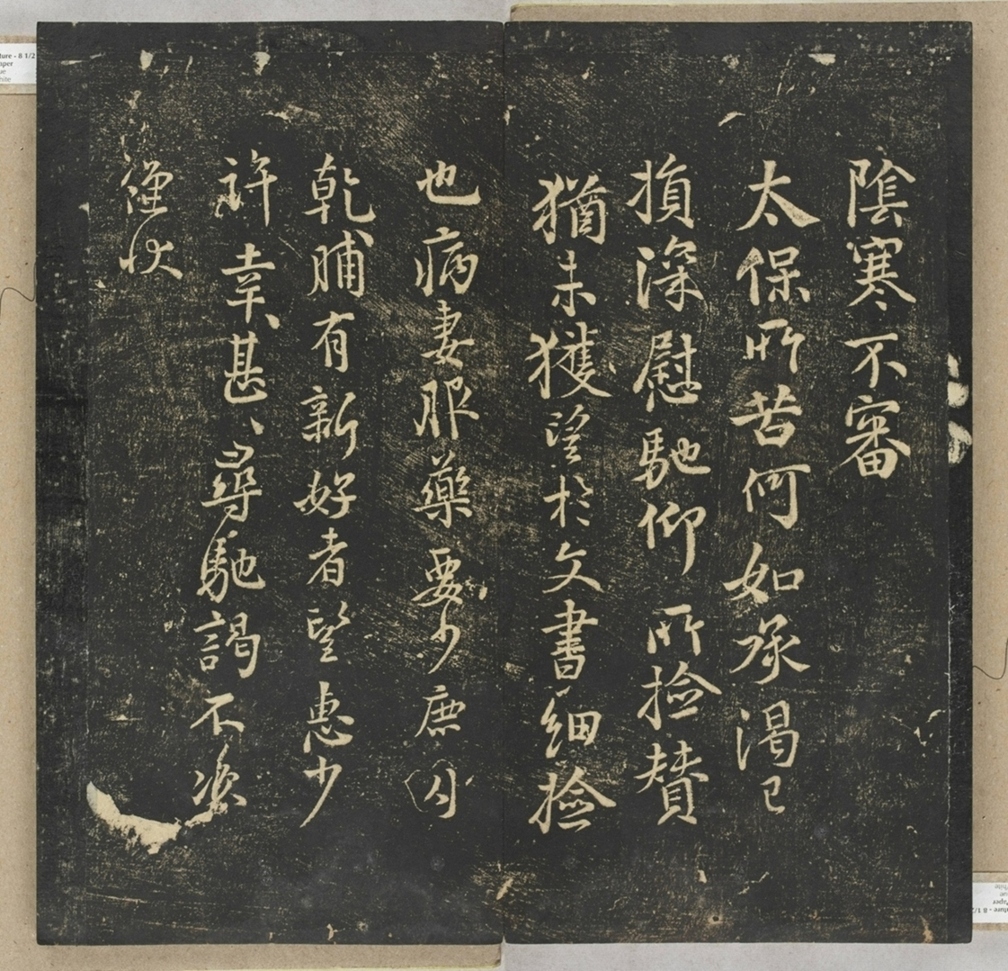 陰寒不審
太保所苦何如承渴已
損深慰馳仰所撿贊
猶未獲望於文書細撿
也病妻服藥要少鹿肉
乾脯有新好者望惠少
許幸〻甚〻尋馳謁不次
謹狀